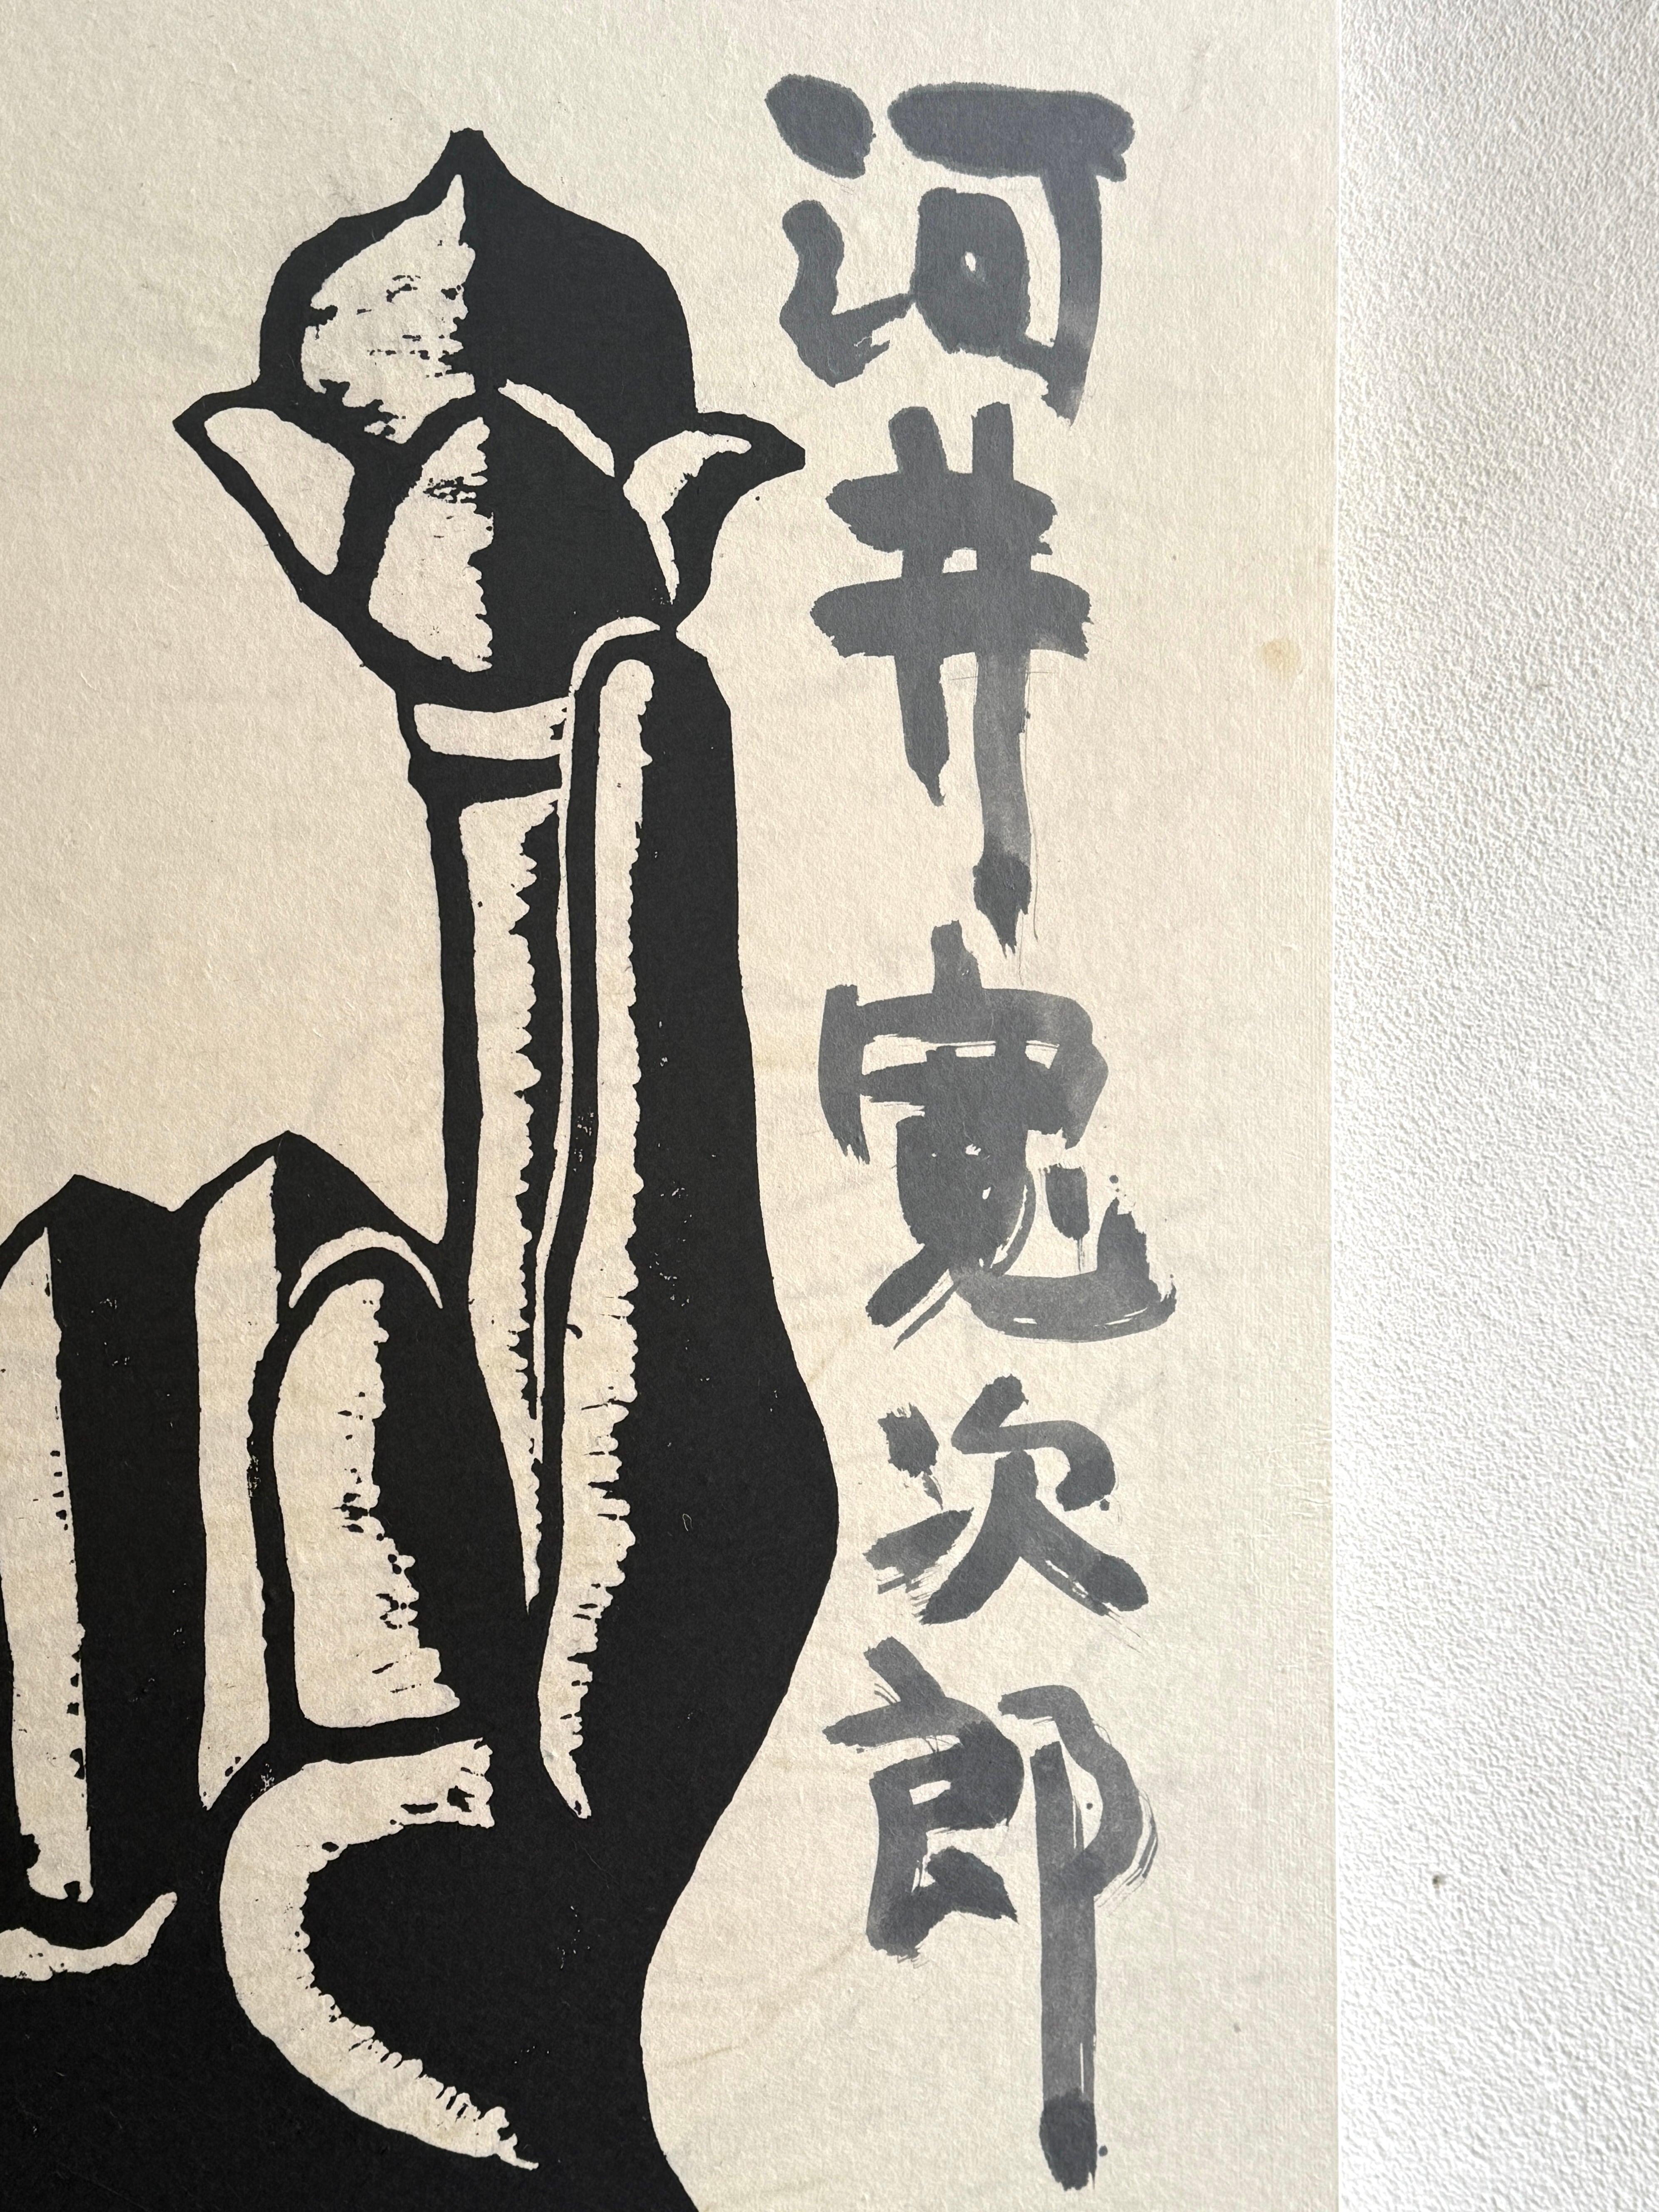 河井寬次郎